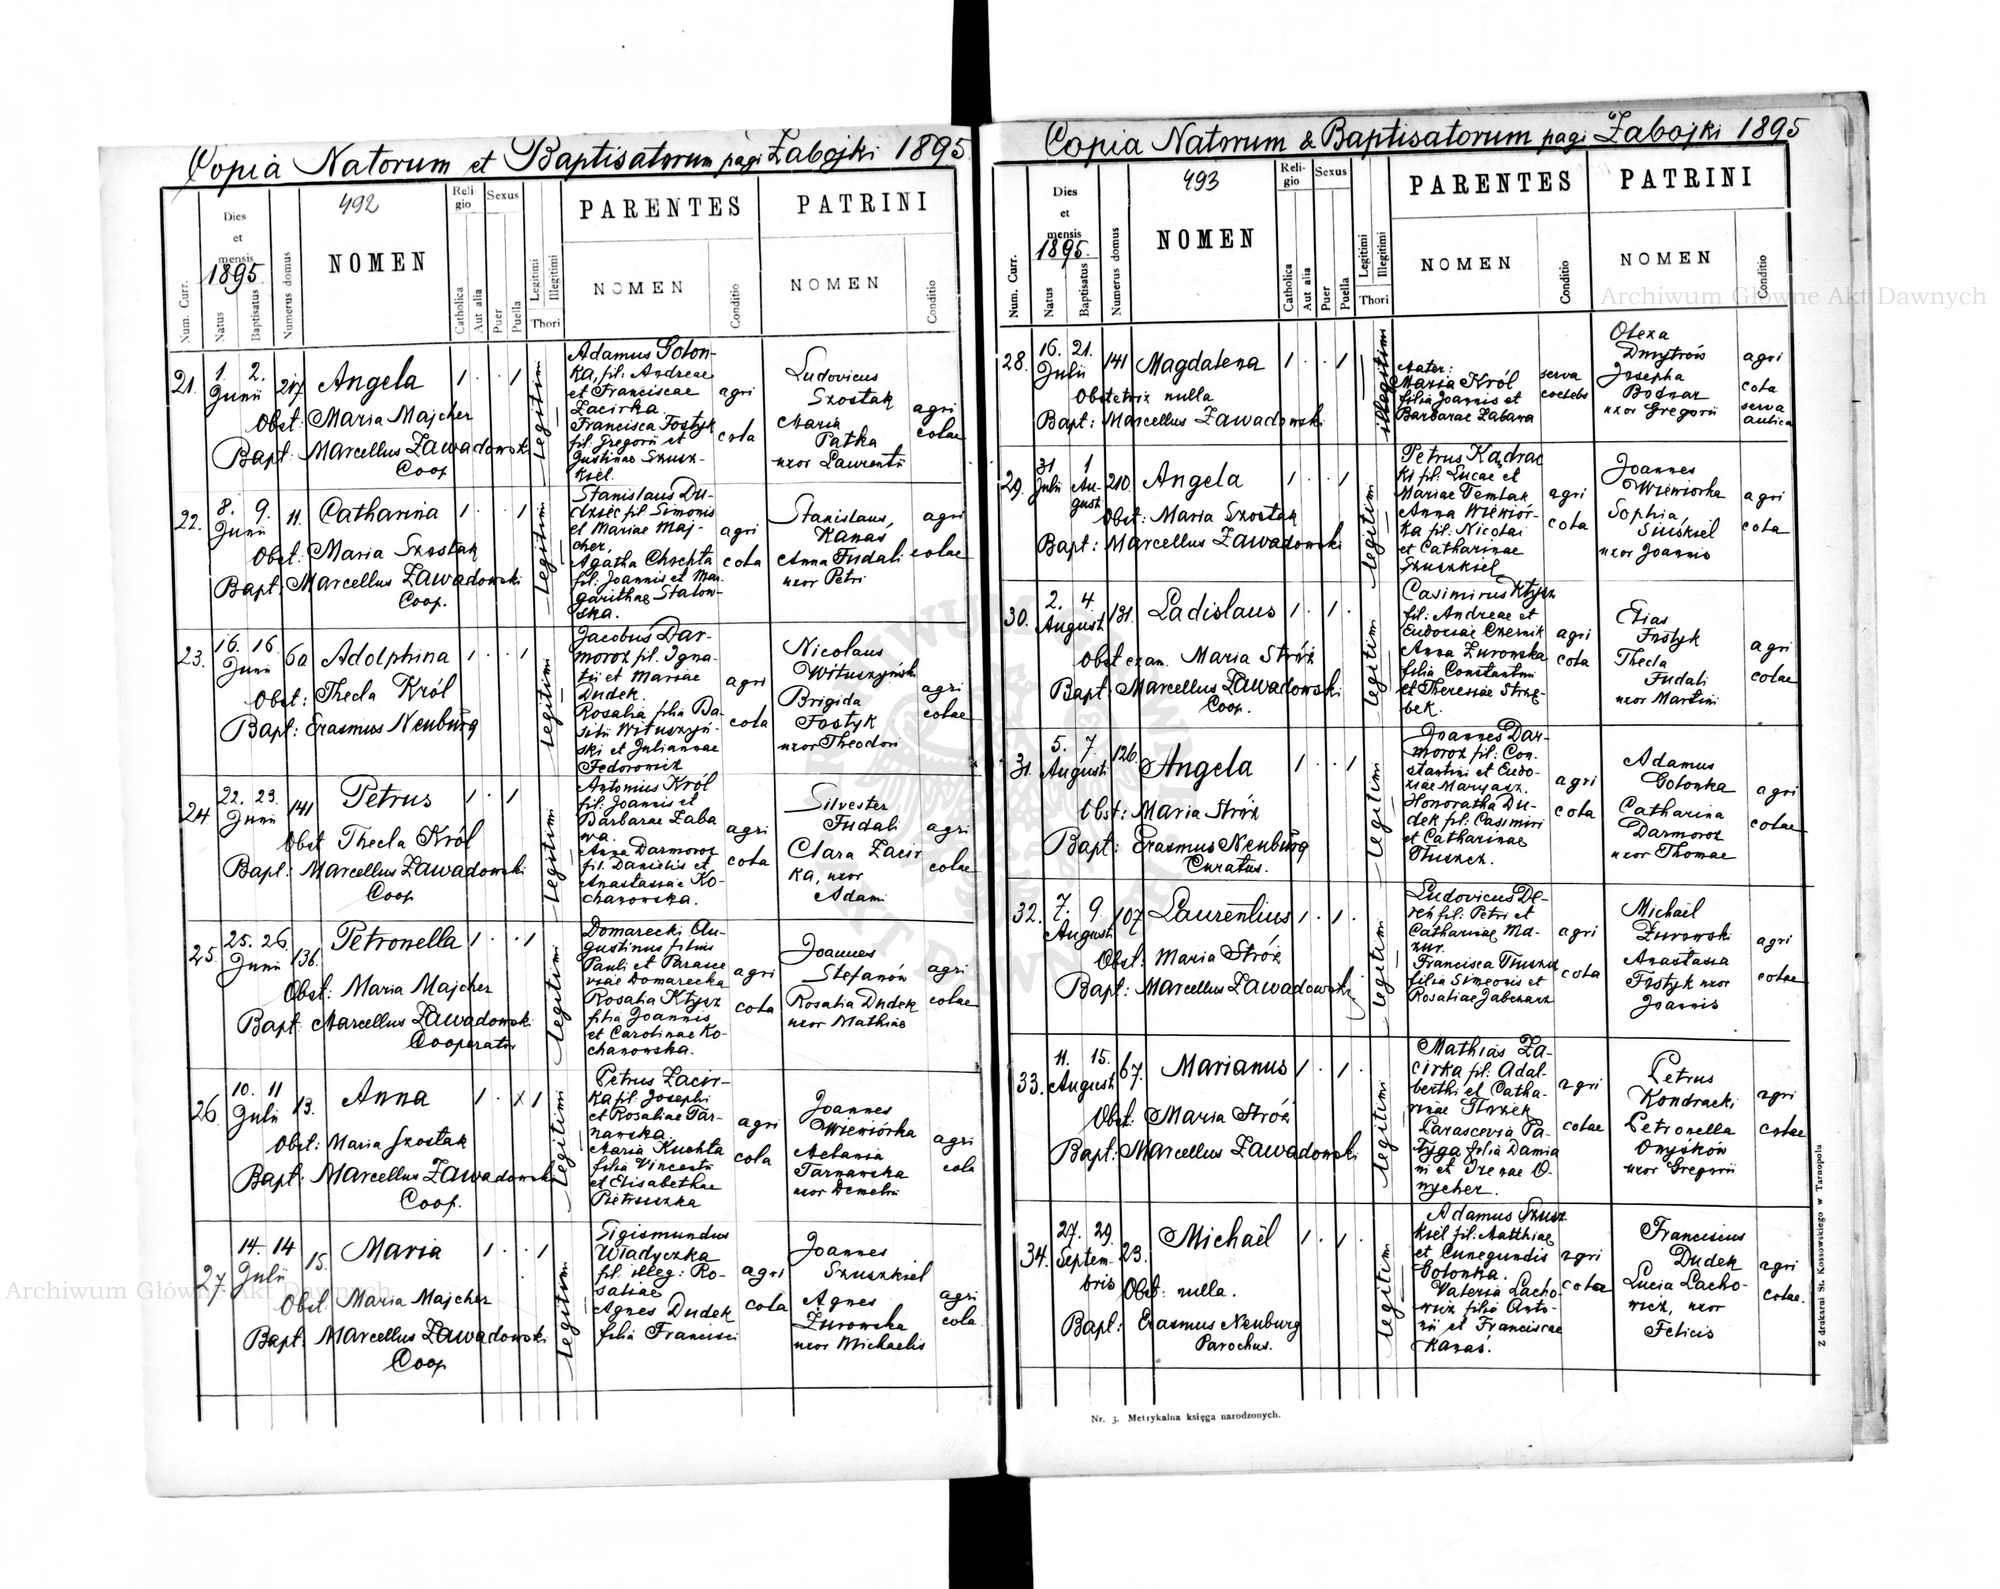 Copia Natorum et Baptisatorum pagi Zabojki 1895
492
Num. Curr.
Dies
et
mensis
1895.
Natus
Baptisatus
Numerus domus
NOMEN
Reli-
gio
Catholica
Aut alia
Sexus
Puer
Puella
Legitimi
Illegitimi
Thori
PARENTES
NOMEN
Conditio
PATRINI
NOMEN
Conditio
21.
1. 2.
Junii
217
Angela
1 . . 1
Obst: Maria Majcher
Bapt: Marcellus Zawadowski
Coop
legitimi
Adamus Golon-
ka, fil. Andreae
et Franciscae
Zacirka
Francisca Fostyk
fil: Gregorii et
Justinae Szusz-
kiel.
agri
cola
Ludovicus
Szostak
Maria
Patka
uxor Laurentii
agri
colae
22.
8. 9.
Junii
11.
Catharina
1 . . 1
Obst: Maria Szostak
Bapt: Marcellus Zawadowski
Coop.
legitimi
Stanislaus Du-
dziec fil. Simonis
et Mariae Maj-
cher,
Agatha Chochta
fil: Joannis et Mar-
garithae Stalow-
ska.
agri
cola
Stanislaus,
Kanas
Anna Fudali
uxor Petri
agri
colae
23.
16. 16.
Junii
60
Adolphina
1 . . 1
Obst: Thecla Król
Bapt: Erasmus Neuburg
legitimi
Jacobus Dar-
moroz fil. Igna-
tii et Mariae
Dudek.
Rosalia filia Ba-
silii Wituszyń-
ski et Juliannae
Fedorowicz
agri
cola
Nicolaus
Wituszyński
Brigida
Fostyk
uxor Theodori
agri
colae
24
22. 23.
Junii
141
Petrus
1 . 1
Obst Thecla Król
Bapt: Marcellus Zawadowski
Coop
legitimi
Antonius Król
fil: Joannis et
Barbarae Zaba
wa.
Anna Darmoroz
fil. Danielis et
Anastasiae Ko-
chanowska.
agri
cola
Silvester
Fudali
Clara Zacir
ka, uxor
Adami
agri
colae
25.
25. 26.
Junii
136.
Petronella
1 . . 1
Obst: Maria Majcher
Bapt: Marcellus Zawadowski
Cooperator
legitimi
Domarecki Au-
gustinus filius
Pauli et Parasce
viae Domarecka
Rosalia Ktysz
filia Joannis
et Carolinae Ko-
chanowska.
agri
cola
Joannes
Stefanów
Rosalia Dudek
uxor Mathiae
agri
colae
26
10. 11
Julii
13.
Anna
1 . x 1
Obst: Maria Szostak
Bapt: Marcellus Zawadowski
Coop.
legitimi
Petrus Zacir-
ka fil. Josephi
et Rosaliae Tar-
nawska.
Maria Kuchta
filia Vincentii
et Elisabethae
Pietruszka
agri
cola
Joannes
Wiewiórka
Melania
Tarnawska
uxor Demetrii
agri
cola
27
14. 14
Julii
15.
Maria
1 . . 1
Obst: Maria Majcher
Bapt: Marcellus Zawadowski
Coop
legitimi
Sigismundus
Władyczka
fil. illeg: Ro-
saliae
Agnes Dudek
filia Francisci
agri
cola
Joannes
Szuszkiel
Agnes
Żurowska
uxor Michaelis
agri
cola
Copia Natorum & Baptisatorum pagi Zabojki 1895
493
Num. Curr.
Dies
et
mensis
1895.
Natus
Baptisatus
Numerus domus
NOMEN
Reli-
gio
Catholica
Aut alia
Sexus
Puer
Puella
Legitimi
Illegitimi
Thori
PARENTES
NOMEN
Conditio
PATRINI
NOMEN
Conditio
28.
16. 21.
Julii
141
Magdalena
1 . . 1
Obstetrix nulla
Bapt: Marcellus Zawadowski
illegitimi
Mater:
Maria Król
filia Joannis et
Barbarae Zabawa
serva
coelebs
Olexa
Dmytrów
Josepha
Bodnar
uxor Gregorii
agri
cola
serva
aulica
29.
31 1
Julii Au-
gust
210.
Angela
1 . . 1
Obst: Maria Szostak
Bapt: Marcellus Zawadowski
legitimi
Petrus Kądrac
ki fil: Lucae et
Mariae Temlak
Anna Wiewiór-
ka fil: Nicolai
et Catharinae
Szuszkiel
agri
cola
Joannes
Wiewiorka
Sophia
Siuskiel
uxor Joannis
agri
cola
30.
2. 4.
August
131.
Ladislaus
1 . 1 .
Obst exam. Maria Stróż
Bapt: Marcellus Zawadowski
Coop.
legitimi
Casimirus Ktysz
fil: Andreae et
Eudoxiae Czernik
Anna Żurowska
filia Constantini
et Theresiae Strzę-
bek.
agri
cola
Elias
Fostyk
Thecla
Fudali
uxor Martini
agri
colae
31.
5. 7.
Augusti
126.
Angela
1 . . 1
Obst: Maria Stróż
Bapt: Erasmus Neuburg
Curatus.
legitimi
Joannes Dar-
moroz fil: Con-
stantini et Eudo-
xiae Maryasz.
Honoratha Du-
dek fil: Casimiri
et Catharinae
Tłuszcz.
agri
cola
Adamus
Golonka
Catharina
Darmoroz
uxor Thomae
agri
colae
32.
7. 9.
Augusti
107
Laurentius
1 . 1 .
Obst: Maria Stróż
Bapt: Marcellus Zawadowski
legitimi
Ludovicus De-
reń fil: Petri et
Catharinae Ma-
zur.
Francisca Tłuszcz
filia Simeonis et
Rosaliae Jabczarz
agri
cola
Michaël
Żurowski
Anastasia
Fostyk uxor
Joannis
agri
colae
33.
11. 15.
August
67.
Marianus
1 . 1 .
Obst: Maria Stróż
Bapt: Marcellus Zawadowski
legitimi
Mathias Za-
cirka fil. Adal-
berthi et Catha-
rinae Strzek
Parascevia Pa-
tyga filia Damia
ni et Irenae O-
nycher.
agri
colae
Petrus
Kondracki
Petronella
Onyśków
uxor Gregorii
agri
colae
34.
27. 29.
Septem-
bris
23.
Michaël
1 . 1 .
Obst: nulla.
Bapt: Erasmus Neuburg
Parochus.
legitimi
Adamus Szusz
kiel fil: Matthiae
et Cunegundis
Golonka.
Valeria Lacho-
wicz filia Anto-
nii et Franciscae
Kanas.
agri
colae
Francisius
Dudek
Lucia Lacho-
wicz, uxor
Felicis
agri
colae.
Nr. 3. Metrykalna księga narodzonych.
Z drukarni St. Kossowskiego w Tarnopolu
Archiwum Główne Akt Dawnych
Archiwum Główne Akt Dawnych